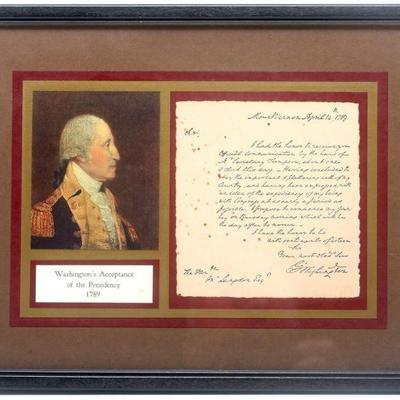 Washington's Acceptance
of the Presidency
1789
Mount Vernon April 14th 1789
Sir,
I had the honor to receive your
Official Communication, by the hand of
Mr Secretary Thompson, about one
o'clock this day. — Having concluded to
obey the important & flattering call of my
Country, and having been impressed with
an idea of the expediency of my being
with Congress at as early a period as
possible; I propose to commence my jour
ney on Thursday morning which will be
the day after to morrow.
I have the honor to be
with sentiments of esteem
Sir
Your most Obedt Servt
G Washington
The
Langdon Esqr